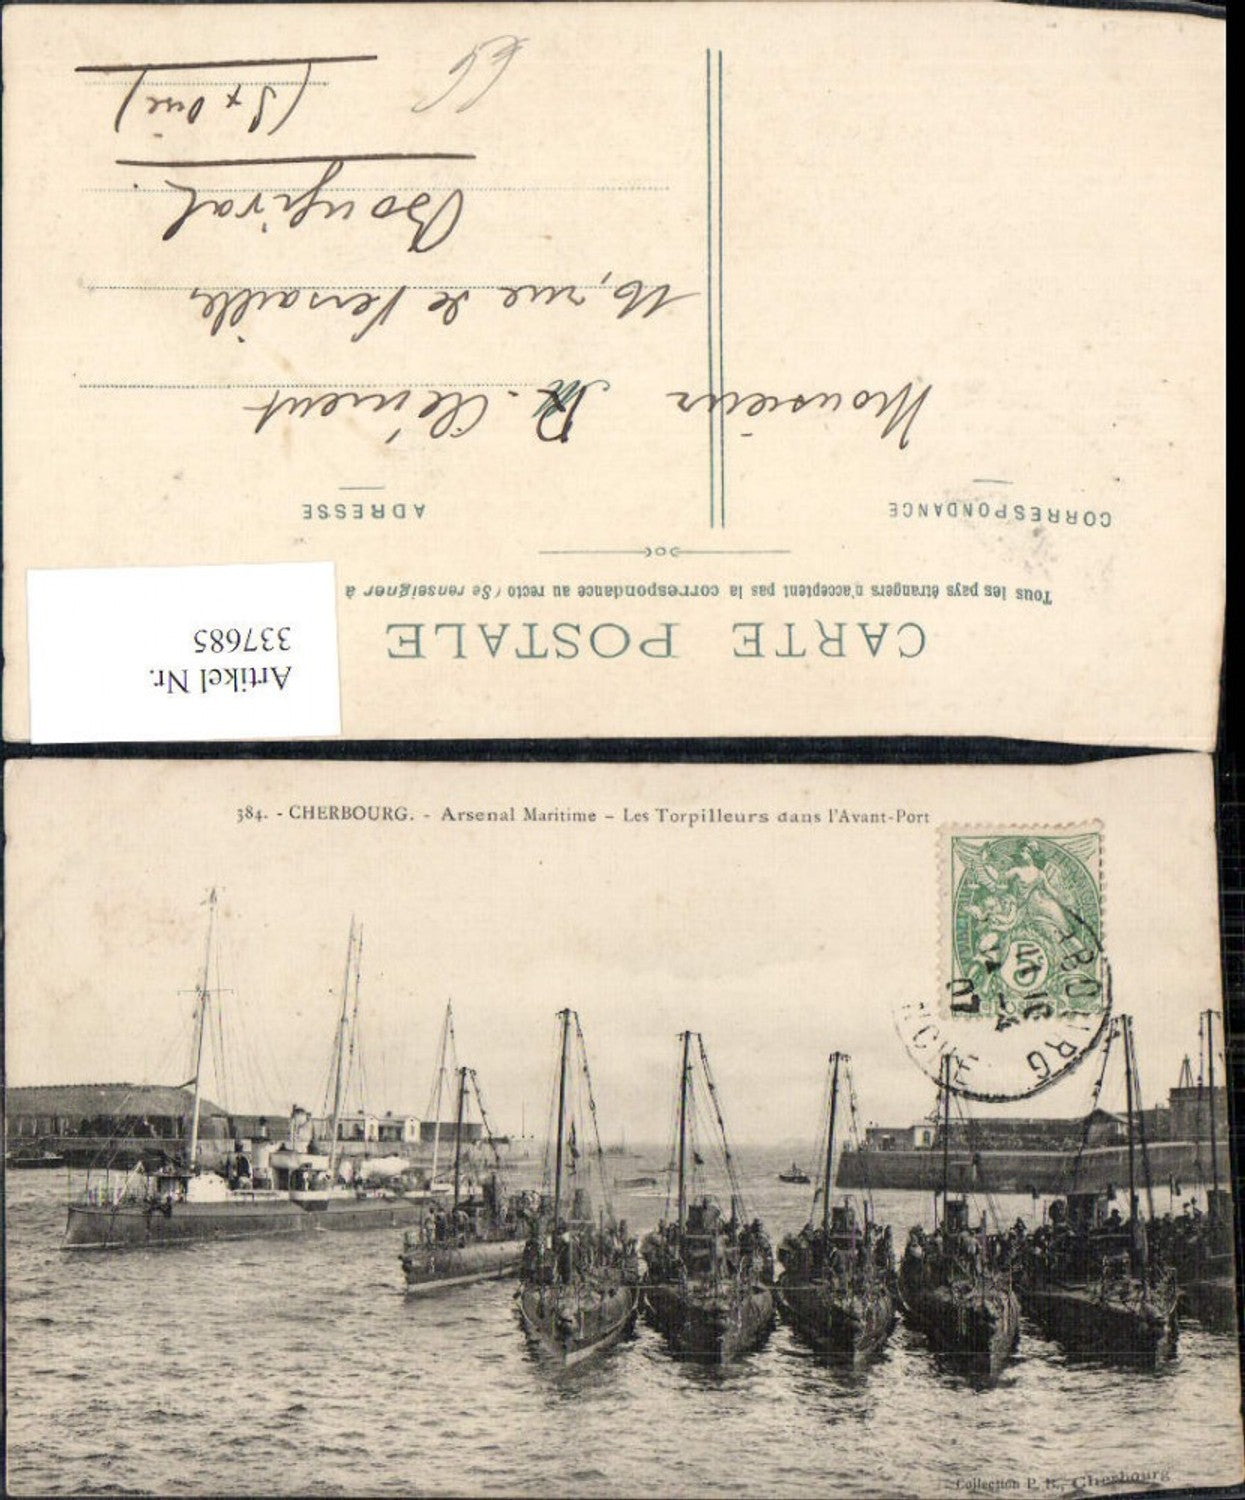 CARTE POSTALE
Tous les pays étrangers n'acceptent pas la correspondance au recto (Se renseigner à
CORRESPONDANCE
ADRESSE
Monsieur R. Clément
16, rue de Versailles
Bougival
(S & Oise)
Artikel Nr.
337685
384. - CHERBOURG. - Arsenal Maritime - Les Torpilleurs dans l'Avant-Port
5
07
Collection P. B., Cherbourg